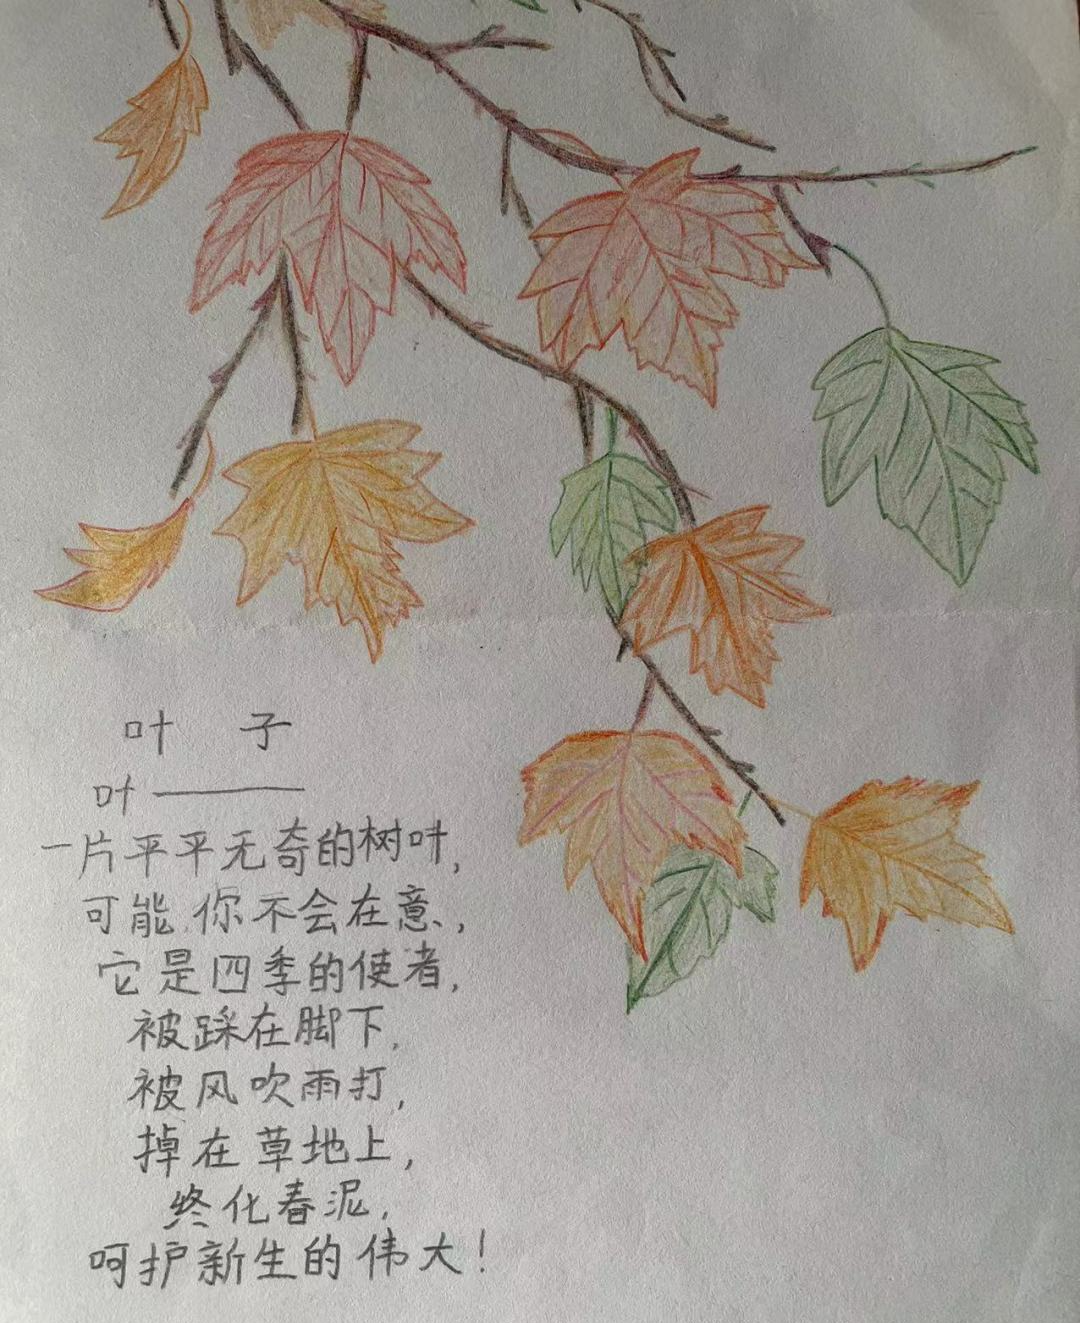 叶 子
叶——
一片平平无奇的树叶,
可能你不会在意,
它是四季的使者,
被踩在脚下,
被风吹雨打,
掉在草地上,
终化春泥,
呵护新生的伟大!